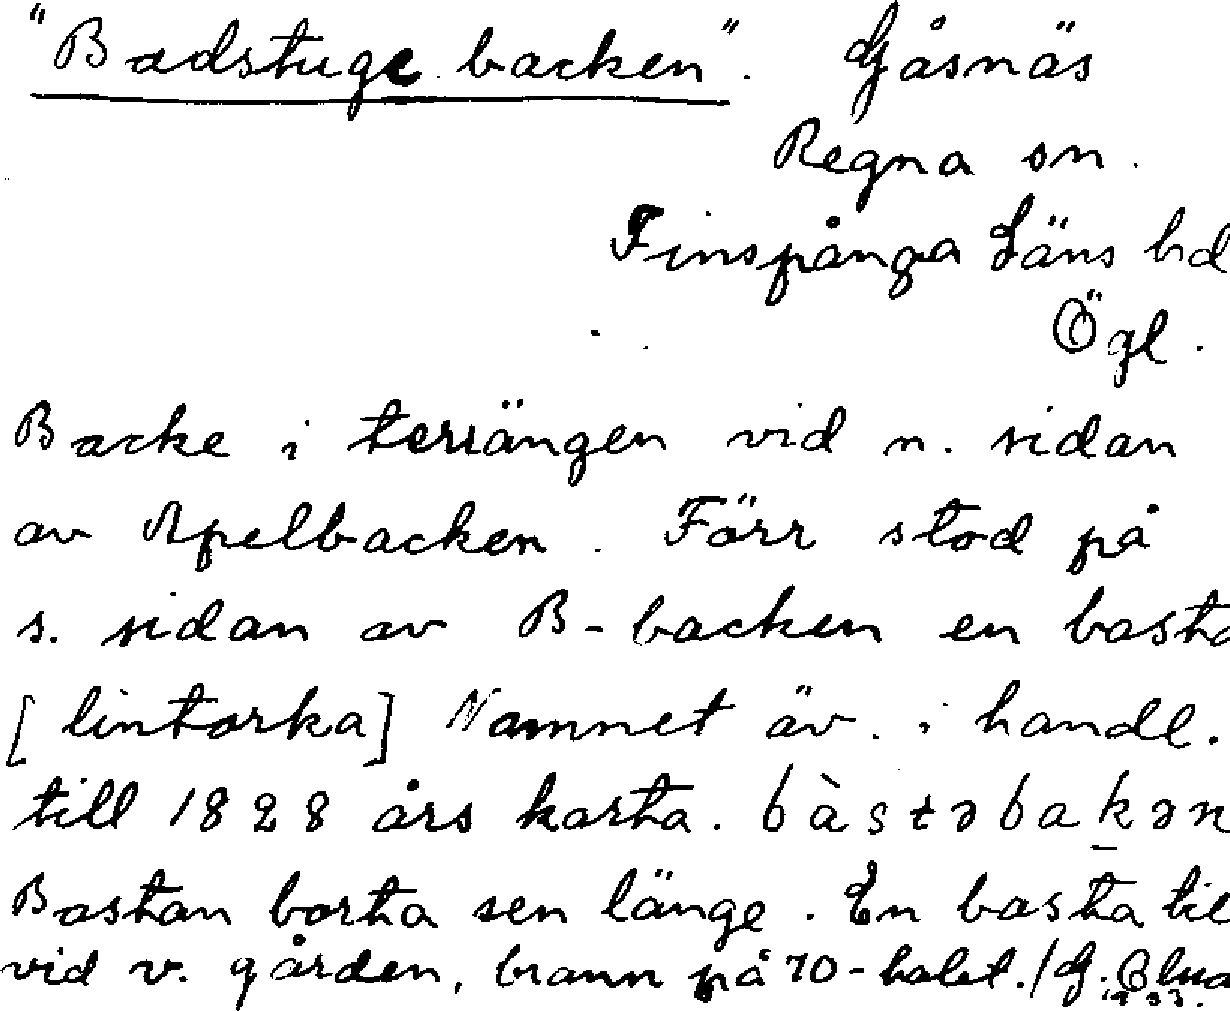 "Badstuge backen". Gåsnäs
Regna sn.
Finspånga Läns hd
Ögl.
Backe i terrängen vid n. sidan
av Apelbacken. Förr stod på
s. sidan av B-backen en basta
[lintorka] Namnet äv. i handl.
till 1828 års karta. bàstəbakən
Bastan borta sen länge. En basta til
vid v. gården, brann på 70-talet./G.